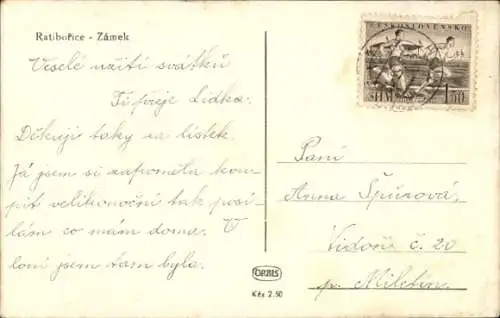 Ratibořice - Zámek
Veselé užití svátků
Ti přeje Lidka.
Děkuji taky za lístek.
Já jsem si zapomněla kou-
pit velikonoční tak posí-
lám co mám doma. V
loni jsem tam byla.
ČESKOSLOVENSKO
1.50
Paní
Anna Špůrová,
Vidoň č. 20
p. Miletín.
ORBIS
Kčs 2.50